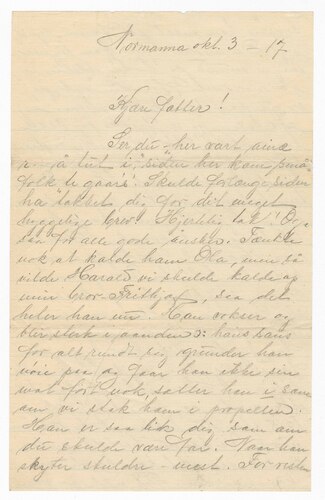 Normanna okt. 3 – 17
Kjære fatter!
Ser du – her vart
r – å titt i siden her kom små
folk te gaars! Skulde forlænge siden
ha takket dig for dit meget
hyggelige brev. Hjertelig tak! Og
saa for alle gode ønsker. Tænkte
nok at kalde ham Ola, men så
vilde Harald vi skulde kalde og
min bror Frithjof, saa det
heter han nu. Han vokser og
blir sterk i aanden ɔ: hans sans
for alt rundt sig, grunder han
nøie paa og faar han ikke sin
mat fort nok, sætter han i som
om vi stak ham i propellen.
Han er saa lik dig, som om
du skulde være far. Naar han
skyter skuldre – mest. For resten